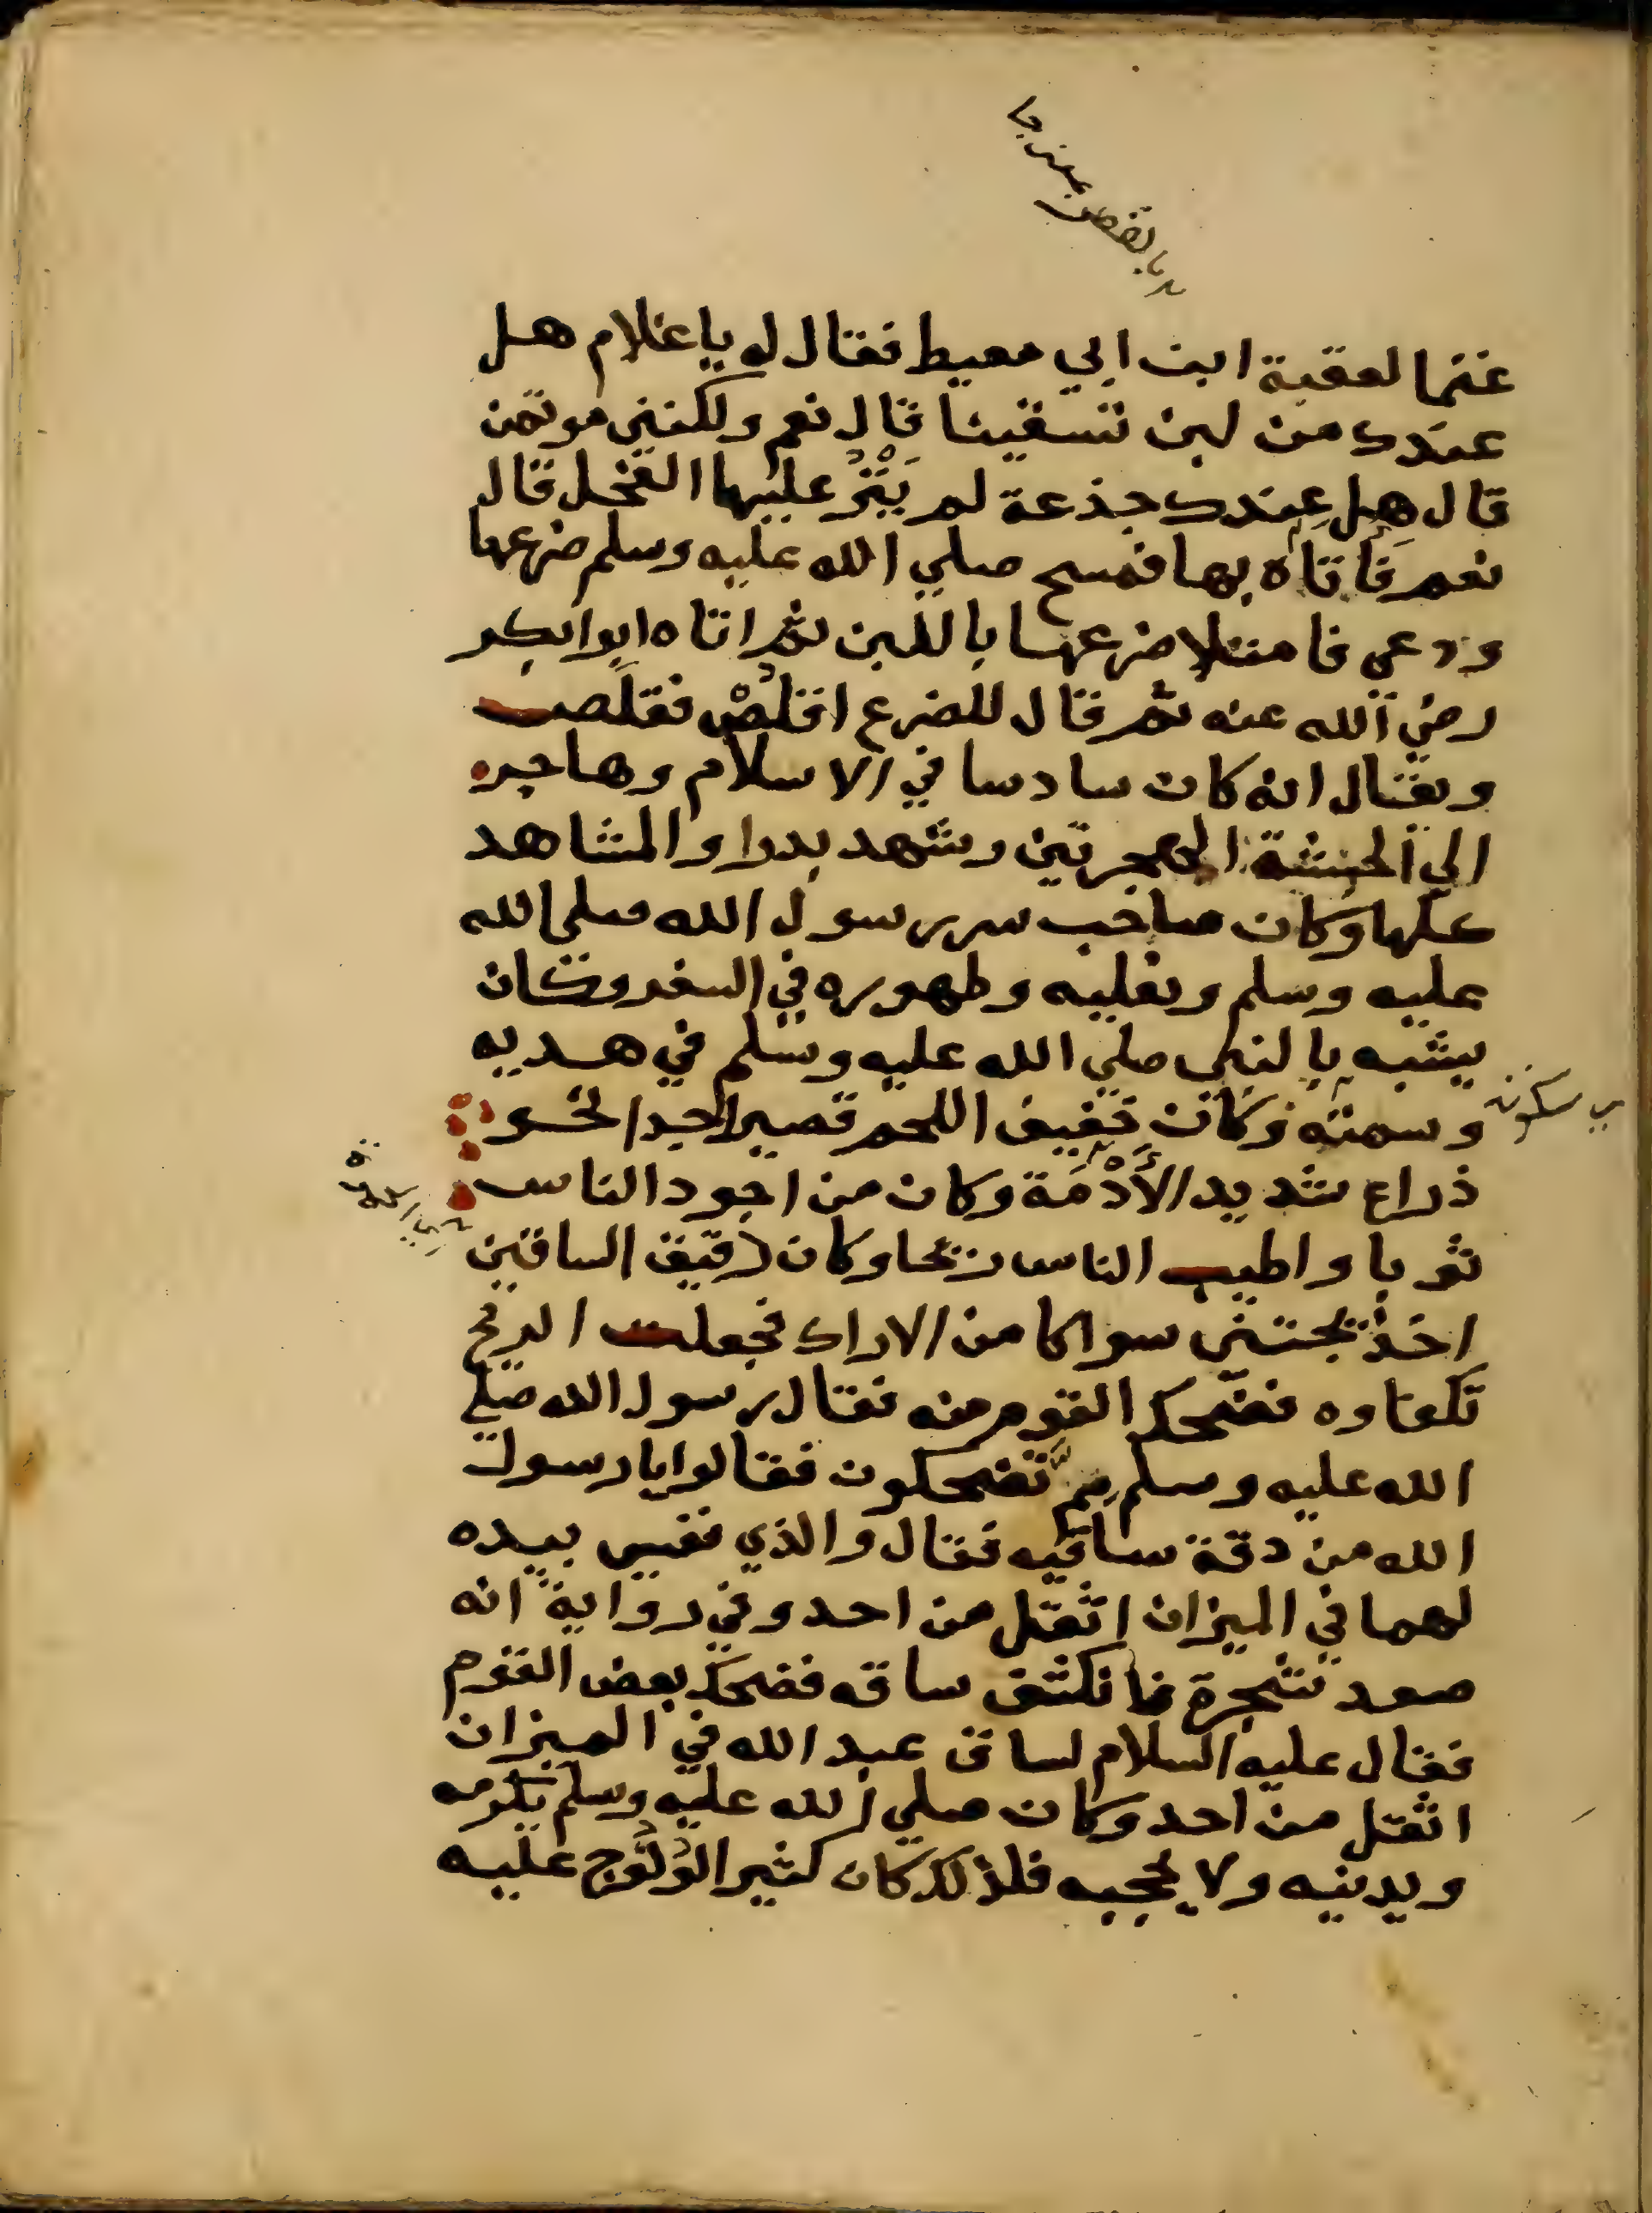 غنما لعقبة ابن ابي معيط فقال له يا غلام هل
عندك من لبن تسقينا قال نعم ولكنني موتمن
قال هل عِندك جذعة لم يَنْزُ عليها الفحل قال
نعم فَأَتاه بها فمسح صلي الله عليه وسلم ضرعها
ودعى فامتلا ضرعها باللبن ثم اتاه ابوابكر
رضي الله عنه ثم قال للضرع اقلُصْ فقلَصت
ويقال انه كان سادسا في الاسلام وهاجر
الي الحبشة الهجرتين وشهد بدرا والمشاهد
كلها وكان صاحب سر رسول الله صلى الله
عليه وسلم ونعليه وطهوره في السفر وكان
يشبه بالنبي صلي الله عليه وسلم في هديه
وسمته وكان خفيف اللحم قصيرا جدا نحو
ذراع شديد الأُدْمَة وكان من اجود الناس
ثوبا واطيب الناس ريحا وكان دقيق الساقين
اخذ يجتني سواكا من الاراك فجعلت الريح
تكفاوه فضحك القوم منه فقال رسول الله صلي
الله عليه وسلم مِمَّ تضحكون فقالوا يا رسول
الله من دقة ساقيه فقال والذي نفسي بيده
لهما في الميزان اثقل من احد وفي رواية انه
صعد شجرة فانكشف ساقه فضحك بعض القوم
فقال عليه السلام لساق عبد الله في الميزان
اثقل من احد وكان صلي الله عليه وسلم يكرمه
ويدنيه ولا يحجبه فلذلك كان كثير الوُلُوج عليه